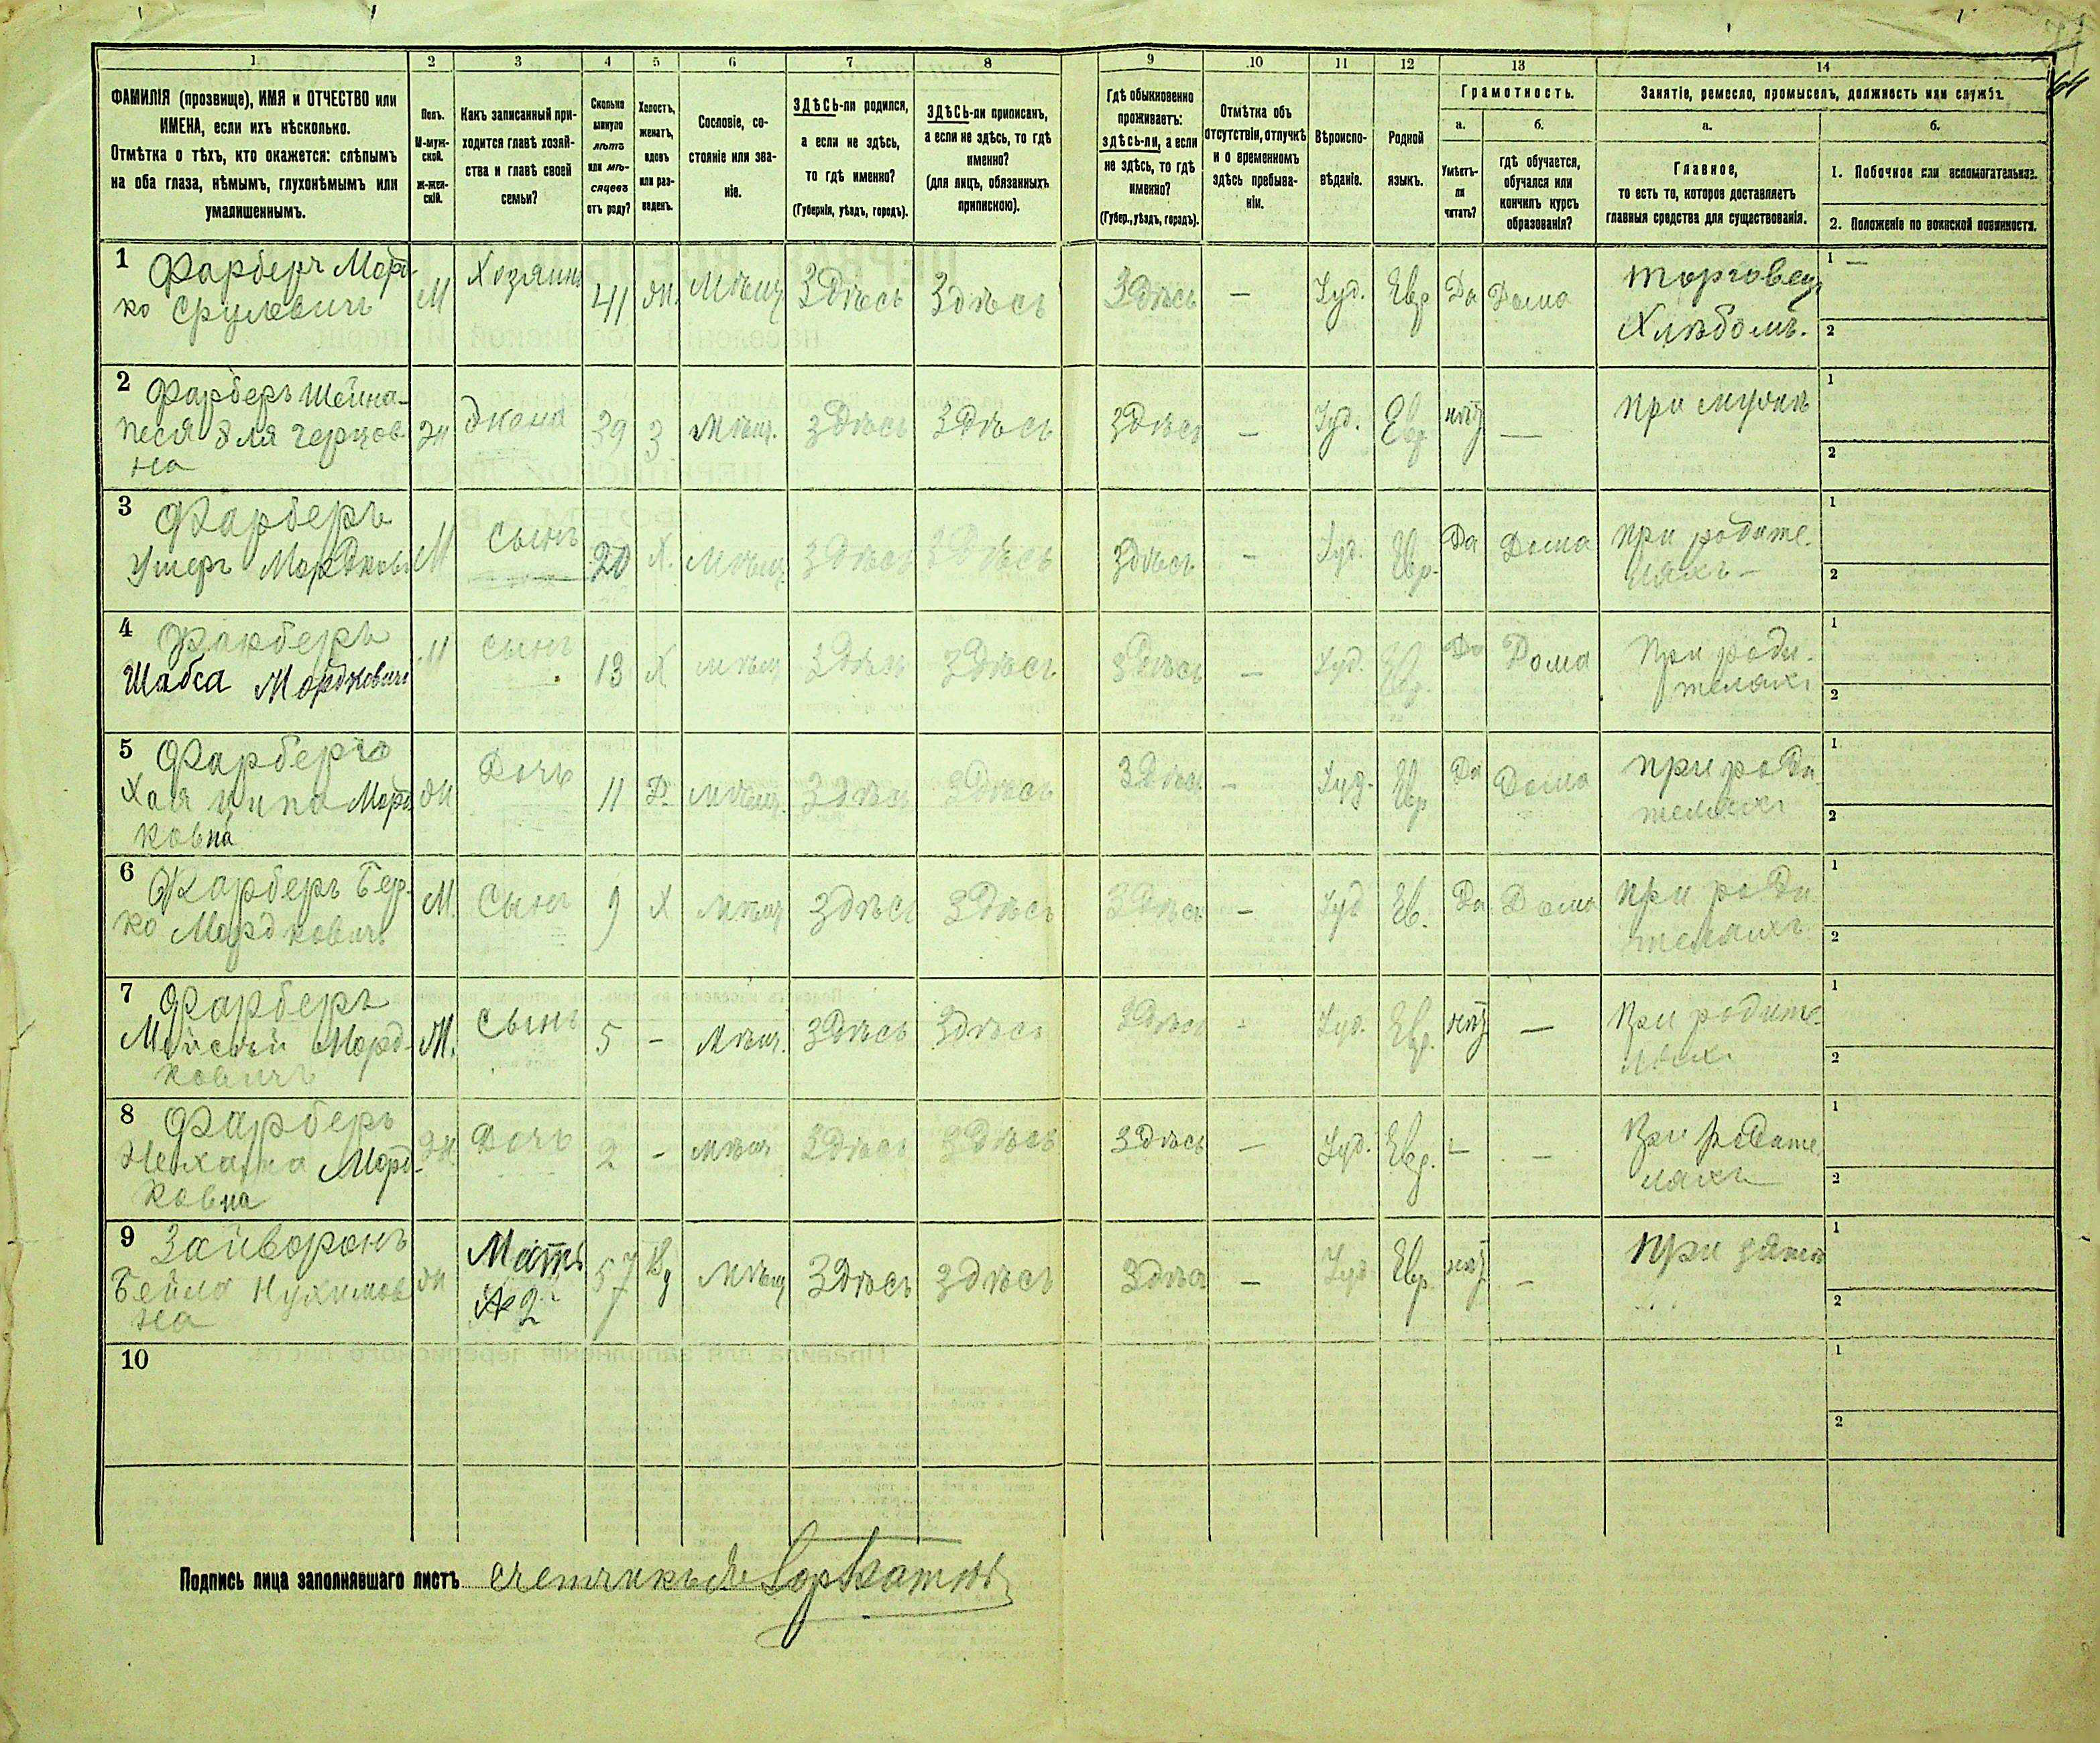 1 2 3 4 5 6 7 8 9 10 11 12 13 14
ФАМИЛІЯ (прозвище), ИМЯ и ОТЧЕСТВО или
ИМЕНА, если ихъ нѣсколько.
Отмѣтка о тѣхъ, кто окажется: слѣпымъ
на оба глаза, нѣмымъ, глухонѣмымъ или
умалишеннымъ.
Полъ.
М-муж-
ской.
Ж-жен-
скій.
Какъ записанный при-
ходится главѣ хозяй-
ства и главѣ своей
семьи?
Сколько
минуло
лѣтъ
или мѣ-
сяцевъ
отъ роду?
Холостъ,
женатъ,
вдовъ
или раз-
веденъ.
Сословіе, со-
стояніе или зва-
ніе.
ЗДѢСЬ-ли родился,
а если не здѣсь,
то гдѣ именно?
(Губернія, уѣздъ, городъ).
ЗДѢСЬ-ли приписанъ,
а если не здѣсь, то гдѣ
именно?
(для лицъ, обязанныхъ
припискою).
Гдѣ обыкновенно
проживаетъ:
здѣсь-ли, а если
не здѣсь, то гдѣ
именно?
(Губер., уѣздъ, городъ).
Отмѣтка объ
отсутствіи, отлучкѣ
и о временномъ
здѣсь пребыва-
ніи.
Вѣроиспо-
вѣданіе.
Родной
языкъ.
Грамотность.
а.
Умѣетъ-
ли
читать?
б.
гдѣ обучается,
обучался или
кончилъ курсъ
образованія?
Занятіе, ремесло, промыселъ, должность или служба.
а.
Главное,
то есть то, которое доставляетъ
главныя средства для существованія.
б.
1. Побочное или вспомогательное.
2. Положеніе по воинской повинности.
1 Фарберъ Морд-
ко Срулевичъ
М Хозяинъ 41 Ж. Мѣщ Здѣсь Здѣсь Здѣсь — Іуд. Евр Да Дома
Торговец
Хлѣбомъ.
1 —
2
2 Фарберъ Шейна-
Песя
на
Ж Жена 39 З Мѣщ. Здѣсь Здѣсь Здѣсь — Іуд. Евр нѣт —
При мужѣ
1
2
3 Фарберъ
Ушеръ Мордков
М Сынъ 20 Х. Мѣщ. Здѣсь Здѣсь Здѣсь — Іуд. Евр. Да Дома
При родите-
ляхъ —
1
2
4 Фарберъ
Шабса Мордковичъ
М Сынъ 13 Х мѣщ Здѣсь Здѣсь Здѣсь — Іуд. Евр. Да Дома
При роди-
теляхъ
1
2
5 Фарберъ
Хая Ципа Морд
ковна
Ж Дочь 11 Д. мѣщ. Здѣсь Здѣсь Здѣсь — Іуд. Евр Да Дома
При роди
теляхъ
1
2
6 Фарберъ Бер-
ко Мордковичъ
М. Сынъ 9 Х Мѣщ Здѣсь Здѣсь Здѣсь — Іуд Ев. Да Дома
При роди
теляхъ
1
2
7 Фарберъ
Мойсей Морд-
ковичъ
М. Сынъ 5 — Мѣщ. Здѣсь Здѣсь Здѣсь - Іуд. Евр. нѣт —
При родите-
ляхъ
1
2
8 Фарберъ
Нехама Морд-
ковна
Ж. Дочь 2 — мѣщ Здѣсь Здѣсь Здѣсь — Іуд. Евр. — —
При родите
ляхъ
1
2
9 Зайворонъ
Бейла Нухимов
на
Ж Мать 57 Вд Мѣщ Здѣсь Здѣсь Здѣсь — Іуд Евр. нѣт —
№ 2
При зятѣ
1
2
10
1
2
Подпись лица заполнявшаго листъ счетчикъ